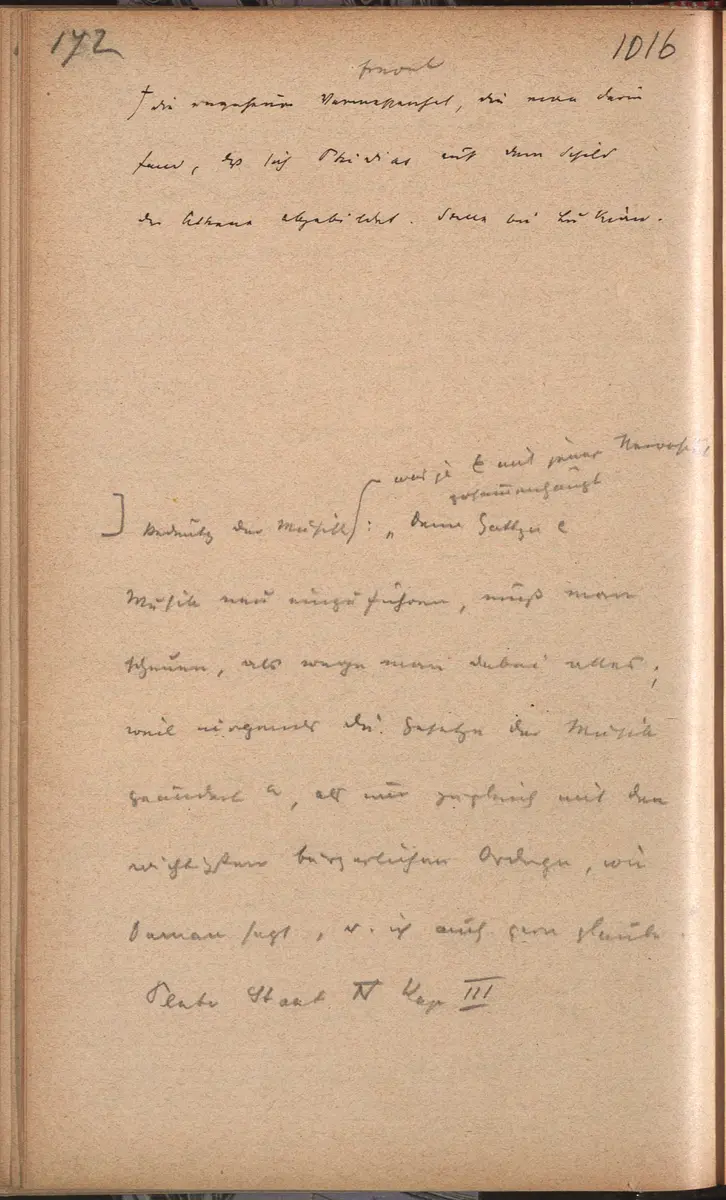 172
1016
† die ungeheure Vermessenheit, die man darin
fand, daß sich Phidias auf dem Schild
der Athena abgebildet. Stelle bei Lukian.
was ja mit jener
zusammenhängt
] Bedeutg der Musik : „Denn Gattgn
Musik neu einzuführen, muß man
scheuen, als wage man dabei alles;
weil nirgends die Gesetze der Musik
geändert , als nur zugleich mit den
wichtigsten bürgerlichen Ordngn, wie
Damon sagt, u. ich auch gern glaube.
Plato Staat IV Kap III